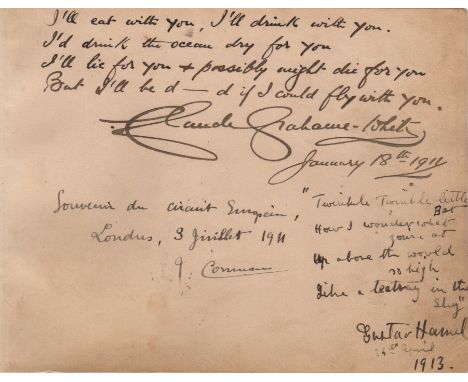 I'll eat with you, I'll drink with you.
I'd drink the ocean dry for you
I'll lie for you & possibly might die for you
But I'll be d—d if I could fly with you.
Claude Grahame-White
January 18th 1911
Souvenir du circuit Européen,
Londres, 3 Juillet 1911
"Twinkle Twinkle little
Bat
How I wonder what
you're at
Up above the world
so high
Like a teatray in the
Sky"
Gustav Hamel
April
1913.